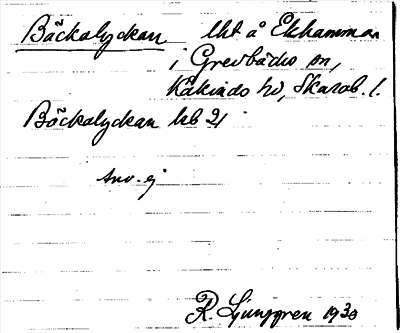 Bäckalyckan lht å Ekhamman
i Grevbäcks sn,
Kåkinds hd, Skarab. l.
Bäckalyckan kb 21
Anv. ej
R. Ljunggren 1930